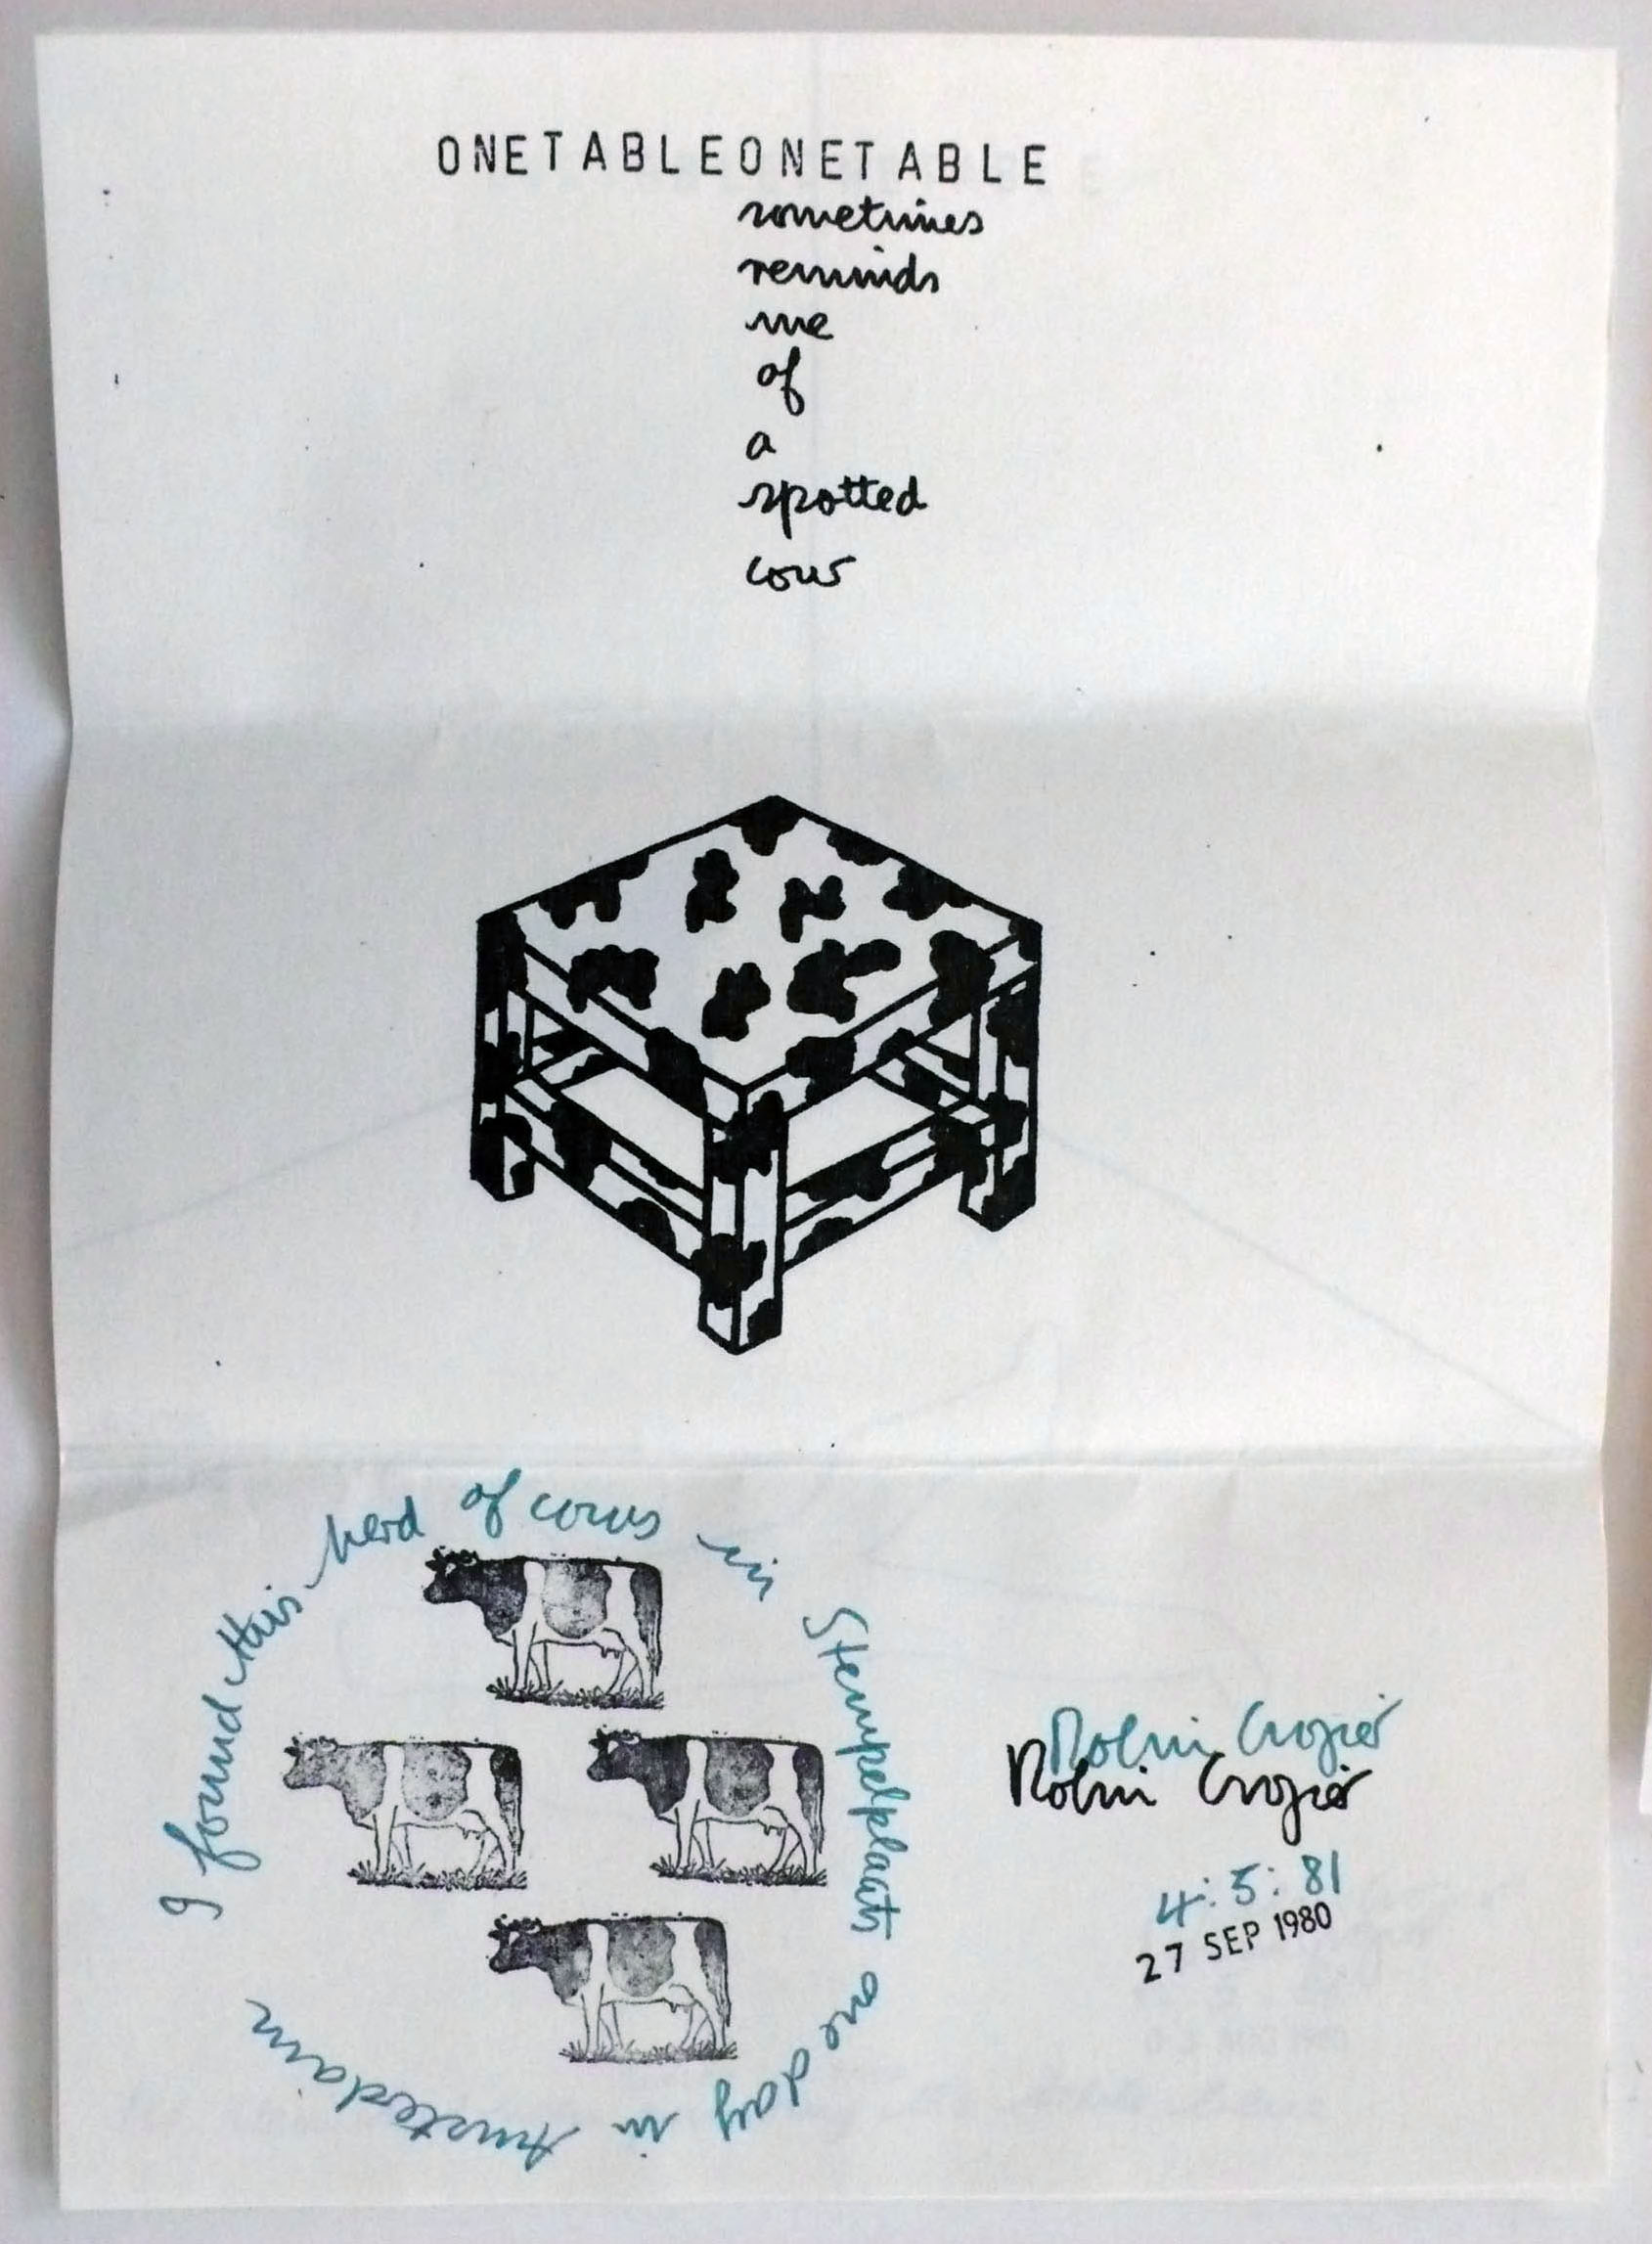 ONETABLEONETABLE
sometimes
reminds
me
of
a
spotted
cow
I found this herd of cows in Stempelplaats one day in Amsterdam
Robin Crozier
Robin Crozier
4:5:81
27 SEP 1980